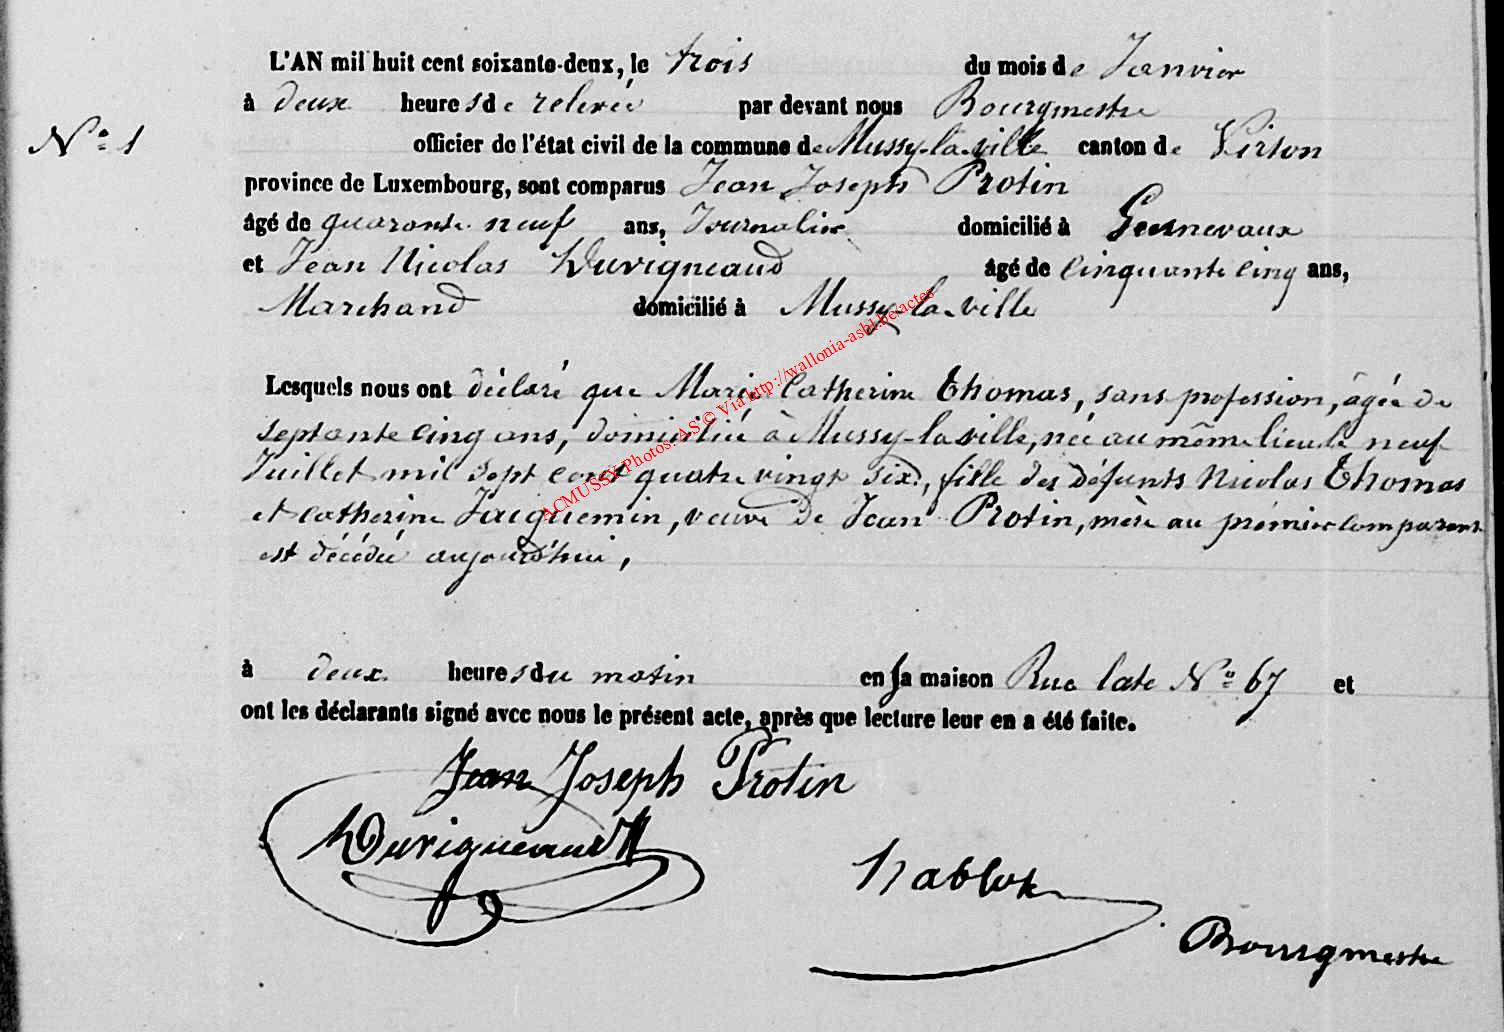 L'AN mil huit cent soixante-deux, le trois du mois de Janvier
à deux heures de relevée par devant nous Bourgmestre
N° 1 officier de l'état civil de la commune de Mussy-la-ville canton de Virton
province de Luxembourg, sont comparus Jean Joseph Protin
âgé de quarante neuf ans, Journalier domicilié à Gernevaux
et Jean Nicolas Duvigneaud âgé de cinquante cinq ans,
Marchand domicilié à Mussy-la-ville
Lesquels nous ont déclaré que Marie Catherine Thomas, sans profession, âgée de
septante cinq ans, domiciliée à Mussy-la-ville, née au même lieu le neuf
Juillet mil sept cent quatre vingt six, fille des défunts Nicolas Thomas
et Catherine Jacquemin, veuve de Jean Protin, mère au prémier comparant
est décédée aujourd'hui,
à deux heures du matin en sa maison Rue late N° 67 et
ont les déclarants signé avec nous le présent acte, après que lecture leur en a été faite.
Jean Joseph Protin
Duvigneaud
Bourgmestre
ACMUSSY Photos: A.S © Via http://wallonia-asbl.be/actes